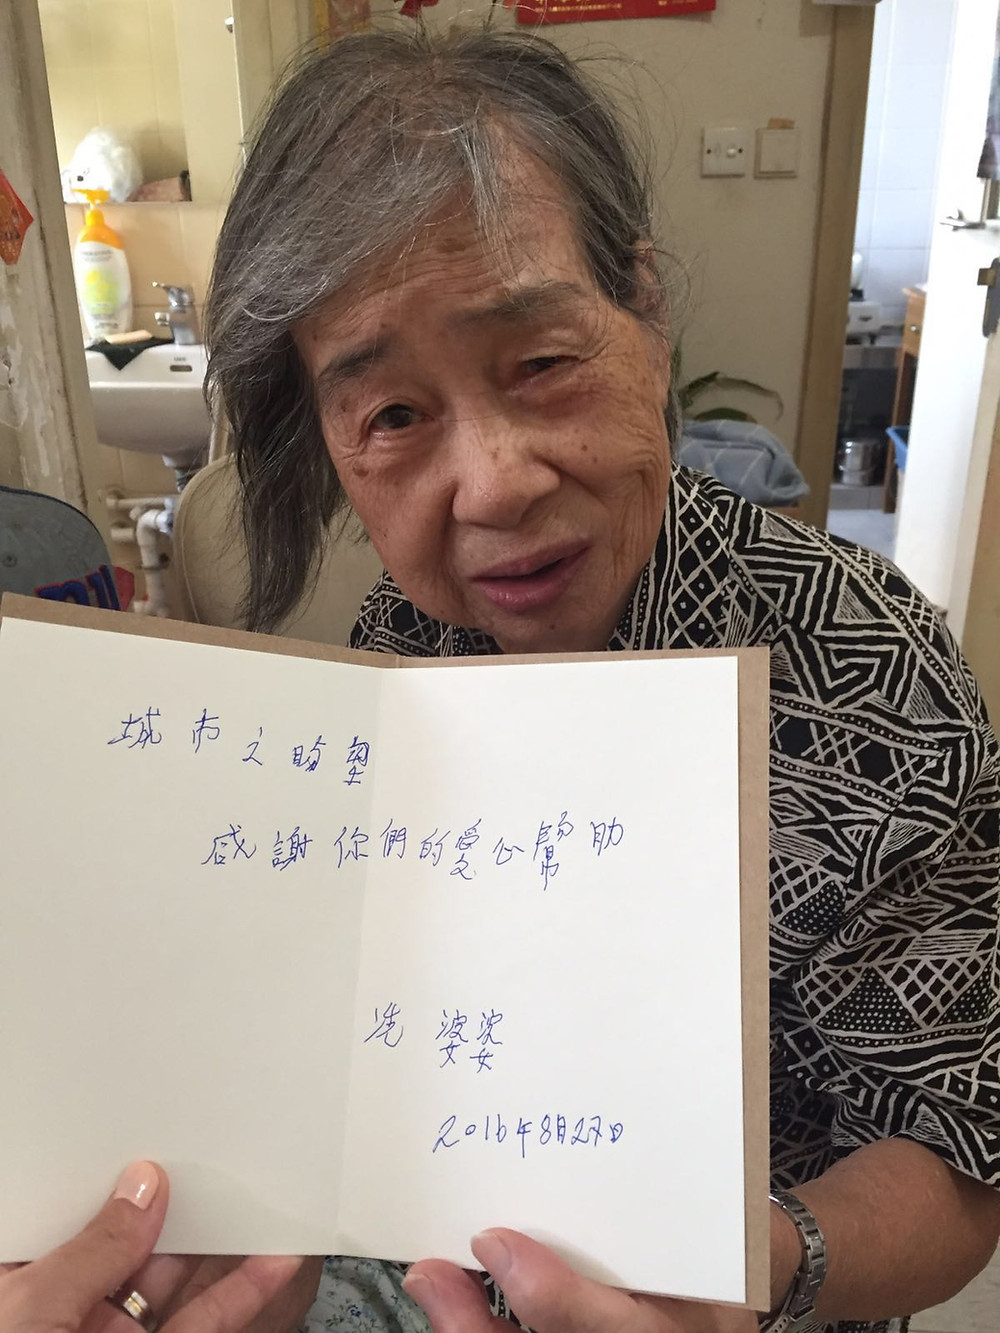 城市之盼望
感謝你們的愛心幫助
冼婆婆
2016年8月27日